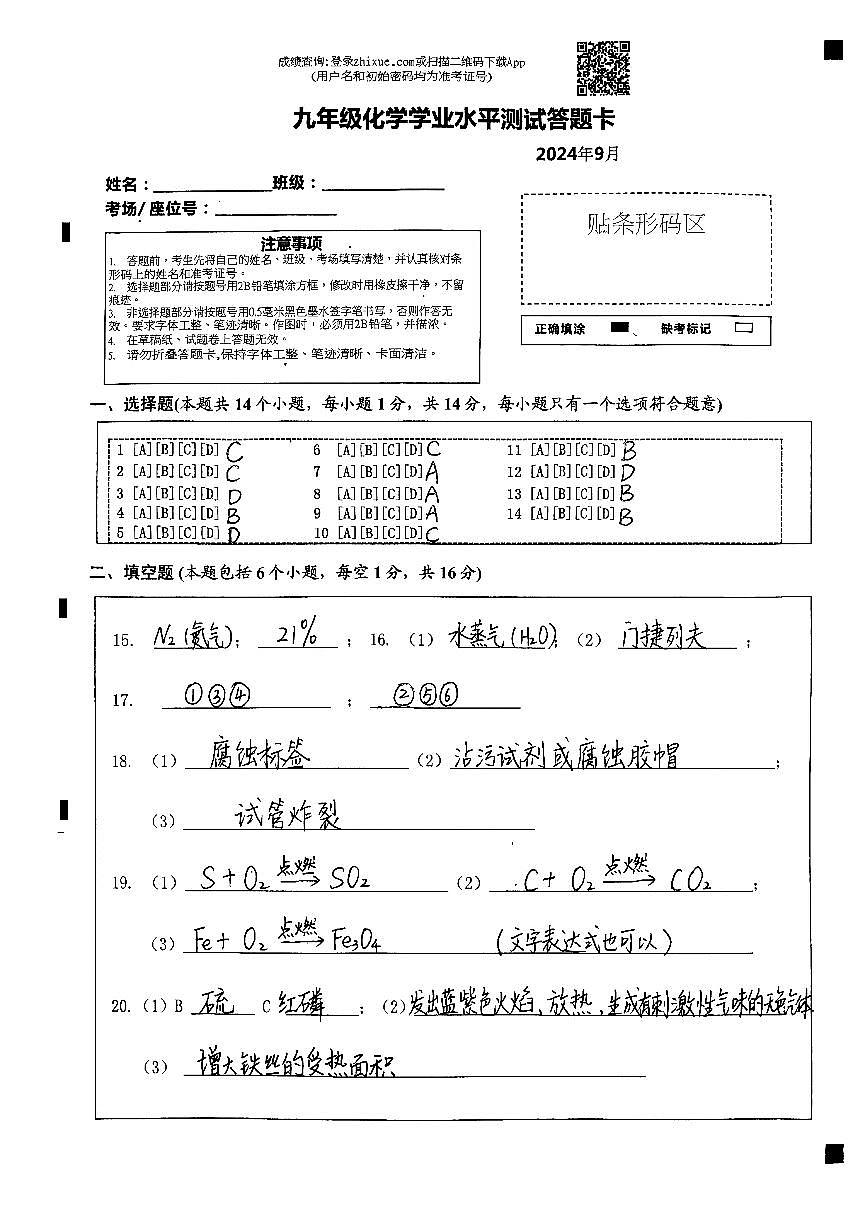 成绩查询:登录zhixue.com或扫描二维码下载App
(用户名和初始密码均为准考证号)
九年级化学学业水平测试答题卡
2024年9月
姓名： 班级：
考场/座位号：
贴条形码区
注意事项
1. 答题前，考生先将自己的姓名、班级、考场填写清楚，并认真核对条
形码上的姓名和准考证号。
2. 选择题部分请按题号用2B铅笔填涂方框，修改时用橡皮擦干净，不留
痕迹。
3. 非选择题部分请按题号用0.5毫米黑色墨水签字笔书写，否则作答无
效。要求字体工整、笔迹清晰。作图时，必须用2B铅笔，并描浓。
4. 在草稿纸、试题卷上答题无效。
5. 请勿折叠答题卡,保持字体工整、笔迹清晰、卡面清洁。
正确填涂 缺考标记
一、选择题(本题共14个小题，每小题1分，共14分，每小题只有一个选项符合题意)
1 [A][B][C][D] C 6 [A][B][C][D] C 11 [A][B][C][D] B
2 [A][B][C][D] C 7 [A][B][C][D] A 12 [A][B][C][D] D
3 [A][B][C][D] D 8 [A][B][C][D] A 13 [A][B][C][D] B
4 [A][B][C][D] B 9 [A][B][C][D] A 14 [A][B][C][D] B
5 [A][B][C][D] D 10 [A][B][C][D] C
二、填空题(本题包括6个小题，每空1分，共16分)
15. N₂(氮气)； 21% ；16.（1）水蒸气(H₂O)；（2）门捷列夫；
17. ①③④ ； ②⑤⑥
18.（1）腐蚀标签 （2）沾污试剂或腐蚀胶帽；
（3）试管炸裂
19.（1）S + O₂ 点燃→ SO₂ （2）C + O₂ 点燃→ CO₂ ；
（3）Fe + O₂ 点燃→ Fe₃O₄ （文字表达式也可以）
20.（1）B 硫 C 红磷 ；（2）发出蓝紫色火焰、放热、生成有刺激性气味的无色气体
（3）增大铁丝的受热面积